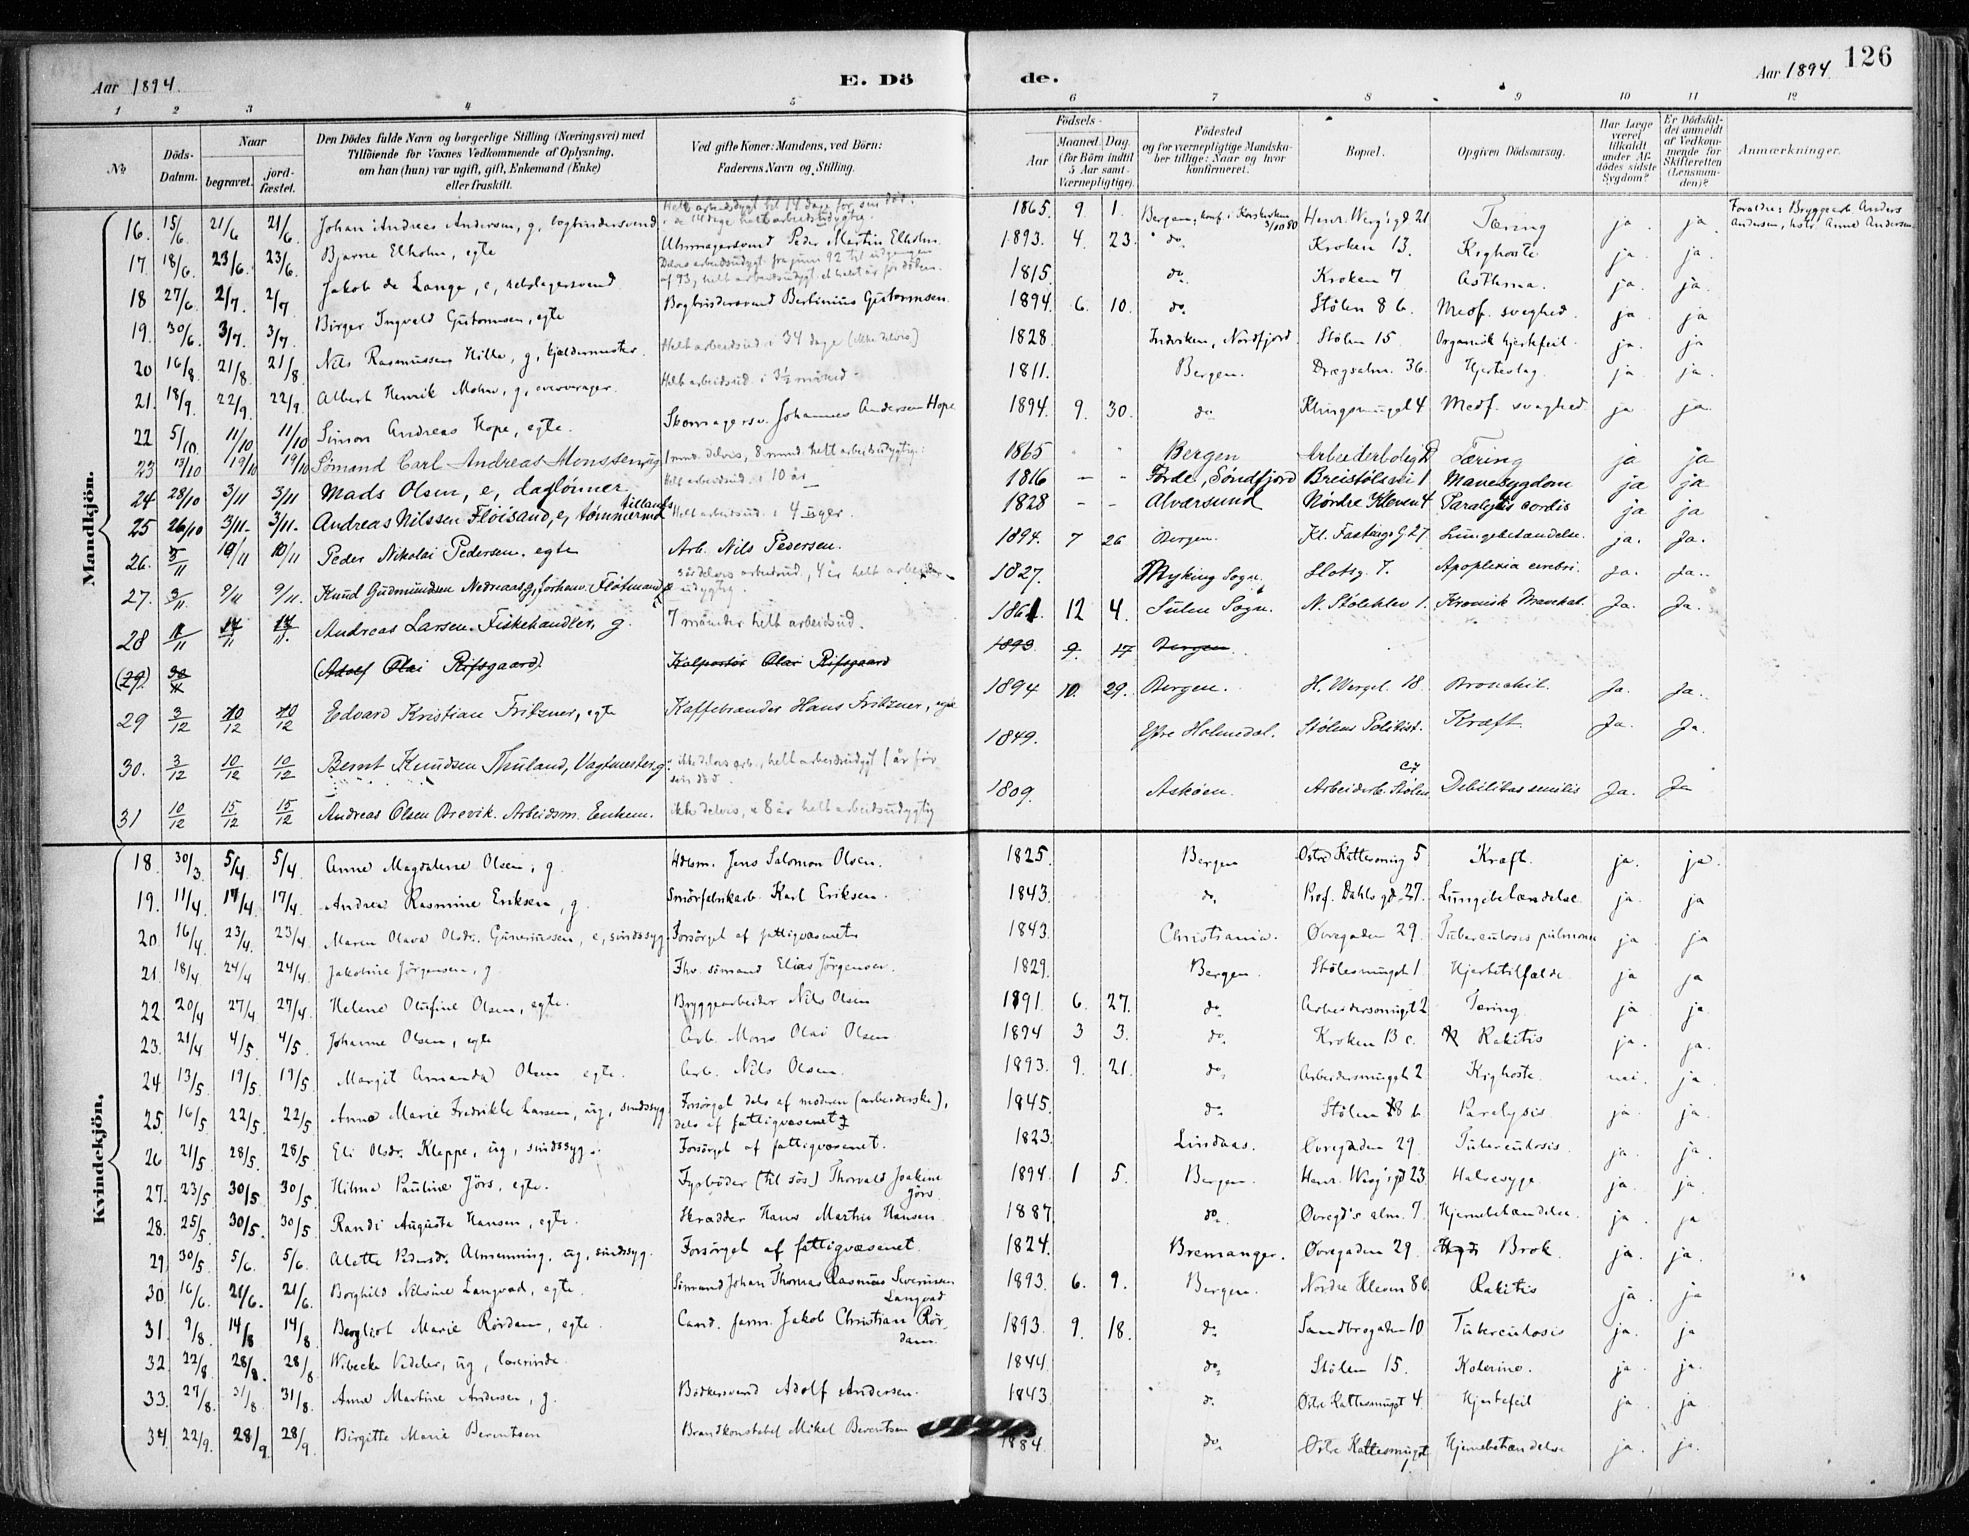 Aar 1894. E. Dö de. Aar 1894 126
1 2 3 4 5 6 7 8 9 10 11 12
No
Döds-Datum.
Naar
begravet. jord-fæstet.
Den Dödes fulde Navn og borgerlige Stilling (Næringsvei) med
Tilföiende for Voxnes Vedkommende af Oplysning,
om han (hun) var ugift, gift, Enkemand (Enke)
eller fraskilt.
Ved gifte Koner: Mandens, ved Börn:
Faderens Navn og Stilling.
Födsels-
Aar Maaned. Dag.
(for Börn indtil
5 Aar samt
Værnepligtige).
Födested
og for værnepligtige Mandska-
ber tillige: Naar og hvor
konfirmeret.
Bopæl.
Opgiven Dödsaarsag.
Har Læge
været
tilkaldt
under Af-
dödes sidste
Sygdom?
Er Dödsfal-
det anmeldt
af Vedkom-
mende for
Skifteretten
(Lensman-
den)?
Anmærkninger.
Mandkjön.
Helt arbeidsudygt til 14 dage før sin død.
16. 15/6. 21/6 21/6. Johan Andreas Andersen, g, bogbindersvend 1865. 9. 1. Bergen, Henr. Werg's gd 21 Tæring ja ja. Forældre: Bryggearb. Anders Andersen, hstr. Anne Andersen
17. 18/6. 23/6. 23/6. Bjarne Elholm, egte Uhrmagersvend Peder Martin Elholm. 1893. 4. 23. do. Kroken 13. Kighoste ja. ja.
18 27/6 2/7. 2/7 Jakob de Lange, e, rebslagersvend 1815 do. Kroken 7 Asthma. ja. ja.
19. 30/6. 3/7 3/7. Birger Ingvald Gustavsen, egte Bogbindersvend Bertinius Gustavsen. 1894 6. 10. do. Stölen 8 b. Medf. svaghed. ja. ja
20 16/8. 21/8. 21/8. Nils Rasmussen Hille, g, kjeldermester. Helt arbeidsud. i 34 dage (ikke delvis) 1828 Indviken, Nordfjord. Stölen 15. Organisk hjertefeil ja. ja
21. 18/9. 22/9. 22/9. Albert Henrik Mohn, g, Helt arbeidsud. i 3½ måned. 1811. Bergen. Drægsalm. 36. Hjerteslag. ja. ja.
22 5/10. 11/10 11/10 Simon Andreas Hope, egte. Skomagersv. Johannes Andersen Hope 1894 9. 30. do. Klingesmuget 4 Medf. svaghed ja ja
23 13/10 19/10 19/10 Sömand Carl Andreas Monssen, ug 1 mnd. delvis, 8 mnd. helt arbeidsudygtig. 1865 " " Bergen Arbeiderbolig Tæring ja ja
24 28/10 3/11 3/11 Mads Olsen, e, daglönner Helt arbeidsud. i 10 år 1816 – – Förde, Söndfjord Breistölsvei 1 Mavesygdom ja ja
25 26/10 3/11. 3/11. Andreas Nilssen Flöisand, e, tömmermd tillands Helt arbeidsud. i 4 uger. 1828 – – Alversund Nordre Kleven 4 Paralysis cordis ja ja
26. 5/11 10/11 10/11 Peder Nikolai Pedersen. egte Arb. Nils Pedersen. 1894. 7 26 Bergen. Kl. Fastings G 27. Lungebetændelse. ja. ja.
27. 3/11. 9/11 9/11. Knud Gudmundsen Nedreaas, g, forhenv. Flötmand 1827. Myking Sogn. Slotsg. 7. Apoplexia cerebri. ja. ja.
28 11/11 17/11 17/11. Andreas Larsen. Fiskehandler, g. 7 måneder helt arbeidsud. 1861. 12 4. Sulen Sogn. N. Stöleklev 1. Kronisk Mavekat. Ja. Ja.
(29) 30/11 (Adolf Olai Rifsgaard). Kolportör Olai Rifsgaard 1893. 9. 17 Bergen.
29 3/12 10/12 10/12 Edvard Kristian Fritzner, egte Kaffebrænder Hans Fritzner, 1894 10. 29. Bergen. H. Wergel. 18. Bronchit. Ja. Ja.
30. 3/12 10/12 10/12 Bernt Knudsen Thuland, Vagtmester g. ikke delvis arb., helt arbeidsudygt 1 år før sin död. 1849. Ytre Holmedal. Stölens Politist. Kræft Ja. Ja.
31 10/12 15/12 15/12 Andreas Olsen Brevik. Arbeidsm. Enkem. ikke delvis, 8 år helt arbeidsudygtig 1809. Askøen. Arbeiderb. Stölen Debilitas senilis Ja. Ja
Kvindekjön.
18. 30/3 5/4 5/4. Anne Magdalene Olsen, g. Hdlsm. Jens Salomon Olsen. 1825. Bergen Østre Kattesmug 5 Kræft. ja. ja.
19. 11/4. 17/4 17/4. Andrea Rasmine Eriksen, g. Smörfabrikarb. Karl Eriksen. 1843. do. Prof. Dahls gd. 27. Lungebetændelse. ja. ja
20. 16/4. 23/4. 23/4. Maren Olava Olsdr. Gunerussen, e, sindssyg. Forsörget af fattigvæsenet. 1843. Christiania. Øvregaden 29. Tuberculosis pulmonum ja. ja
21. 18/4 24/4 24/4. Jakobine Jörgensen, g. Fhv. sömand Elias Jörgensen. 1829. Bergen. Stölesmuget 1 Hjertetilfælde. ja ja
22 20/4 27/4 27/4. Helene Olufine Olsen, egte. Bryggearbeider Nils Olsen 1891 6. 27. do. Arbeidersmuget 2 Tæring. ja ja.
23. 21/4 4/5 4/5. Johanne Olsen, egte Arb. Mons Olai Olsen 1894 3 3. do. Kroken 13 c. Rakitis ja. ja.
24 13/5. 19/5. 19/5 Margit Amanda Olsen egte. Arb. Nils Olsen. 1893. 9. 21. do. Arbeidersmuget 2. Kighoste. nei. ja.
25. 16/5 22/5 22/5 Anna Marie Fredrikke Larsen, ug, sindssyg Forsörget dels af moderen (arbeiderske), dels af fattigvæsenet. 1845. do. Stölen 8 b. Paralysis ja. ja.
26 21/5 28/5. 28/5 Eli Olsdr. Kleppe, ug, sindssyg. Forsörget af fattigvæsenet. 1823. Lindaas. Øvregaden 29. Tuberculosis. ja. ja.
27. 23/5 30/5 30/5 Hilma Pauline Jörs, egte. Fyrböder (til sös) Thorvald Joakim Jörs. 1894 1 5. Bergen. Henr. Werg's gd 23. Halssyge. ja. ja.
28. 25/5. 30/5. 30/5 Randi Augusta Hansen, egte. Skrædder Hans Martin Hansen. 1887. do. Øvregd's alm. 7. Hjernebetændelse. ja. ja
29 30/5 5/6. 5/6. Alette Pedersdr. Almenning, ug, sindssyg. Forsörget af fattigvæsenet. 1824. Bremanger. Øvregaden 29. Brok. ja. ja.
30. 16/6. 21/6. 21/6. Borghild Nilsine Langvad, egte. Sömand Johan Thomas Rasmus Severinsen Langvad 1893. 6. 9. Bergen. Nordre Kleven 8 b. Rakitis ja ja
31. 9/8. 14/8 14/8 Bergliot Marie Rördam, egte. Cand. farm. Jakob Christian Rördam. 1893. 9. 18. do. Sandbrogaden 10 Tuberculosis ja. ja
32 22/8 28/8. 28/8 Wibecke Vedeler, ug, lærerinde. 1844. do. Stölen 15. Kolerine. ja. ja.
33. 27/8. 31/8. 31/8. Anne Martine Andersen, g. Bödkersvend Adolf Andersen. 1843 do. Østre Kattesmuget 4. Hjertefeil ja. ja
34. 22/9. 28/9 28/9. Birgitte Marie Berentsen Brandkonstabel Mikel Berentsen 1884. do. Østre Kattesmuget 1 Hjernebetændelse ja. ja.